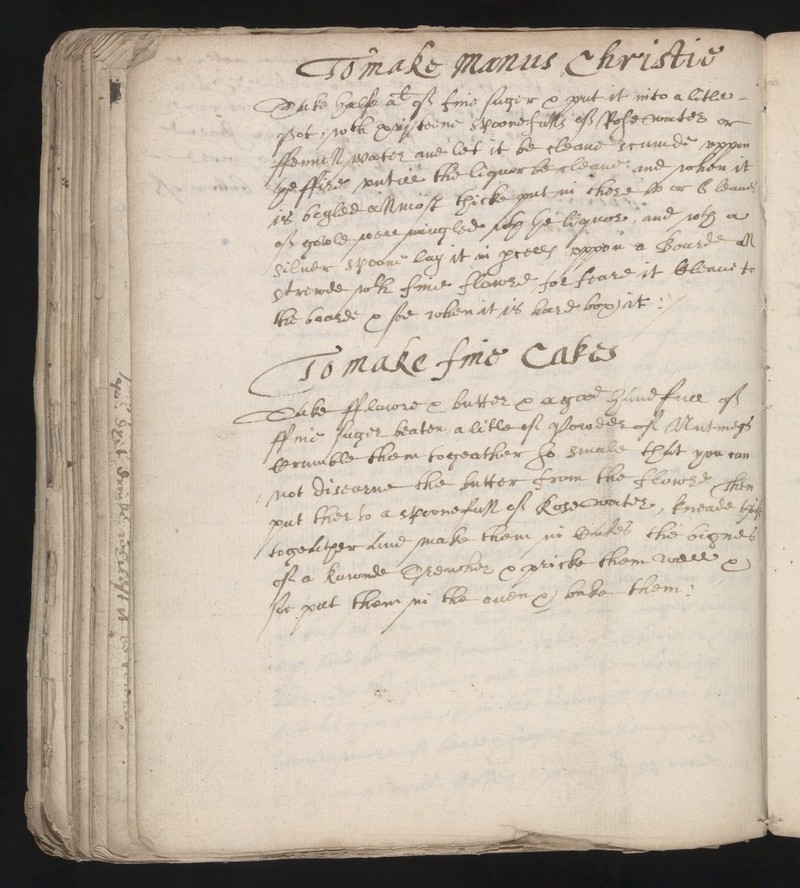 To make Manus Christie
Take halfe a l of fine suger & put it into a litle
pot, with sixteene spoonefulls of Rose water or
ffennell water and let it be cleane scumde uppon
ye ffire untill the liquor be cleane and when it
is boyled allmost thicke put in there 6 or 8 leaues
of goole well mingled with the liquor, and with a
siluer spoone lay it in peeces uppon a Boarde all
strewde with fine flowre for feare it cleaue to
the boarde & soe when it is hard box it :
To make fine Cakes
Take fflowre & butter & a good handfull of
ffine suger beaten, a litle of powder of Nutmegs
Crumble them togeather so smale that you can
not discarne the butter from the flowre Then
put thereto a spoonefull of Rose water, kneade this
togeather And make them in Cakes the bignes
of a Rownde Trencher & pricke them well &
soe put them in the ouen & bake them :